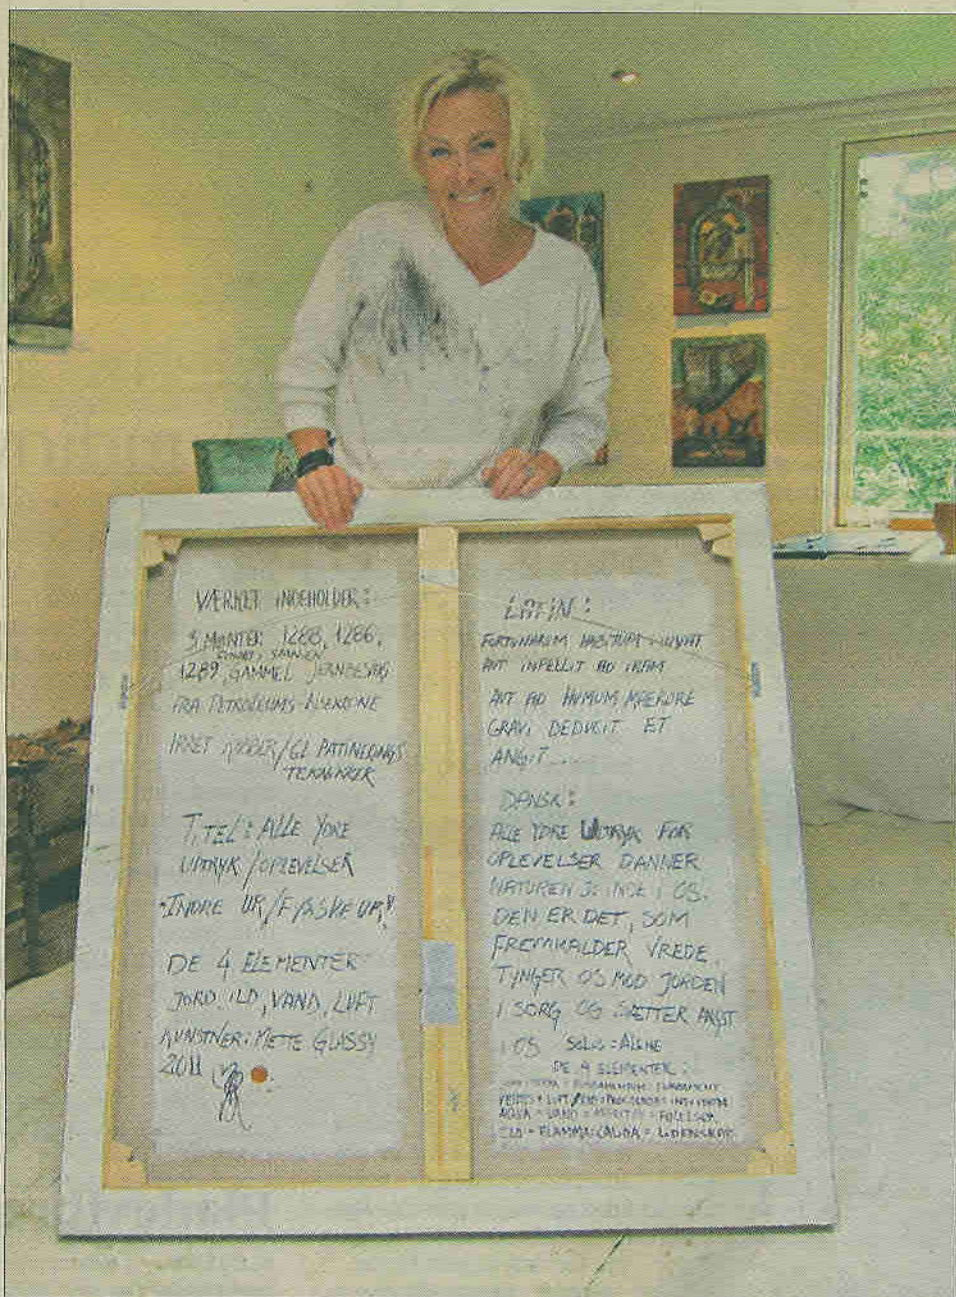 VÆRKET INDEHOLDER:
3 MØNTER 1288, 1286,
1289, GAMMEL JERNBESLAG
FRA PETROLEUMS-
IRRET KOBBER/GL PATINERINGS
TEKNIKKER
TITEL: ALLE YDRE
UDTRYK/OPLEVELSER
INDRE UR/FYSISKE UR,
DE 4 ELEMENTER
JORD, ILD, VAND, LUFT
KUNSTNER: METTE GLASSY
2011
LATIN:
FORTUNARUM HABITUM IUVAT
AUT INPELLIT AD IRAM
AUT AD HUMUM MAERORE
GRAVI DEDUCIT ET
ANGIT....
DANSK:
ALLE YDRE UDTRYK FOR
OPLEVELSER DANNER
NATUREN I OS.
DEN ER DET, SOM
FREMKALDER VREDE.
TYNGER OS MOD JORDEN
I SORG OG SÆTTER ANGST
I OS SOLUS = ALENE
DE 4 ELEMENTER:
FUNDAMENTUM: FUNDAMENT
VENTUS = LUFT
AQUA = VAND = = FØLELSER
ILD = FLAMMA: CALDA = LIDENSKAB